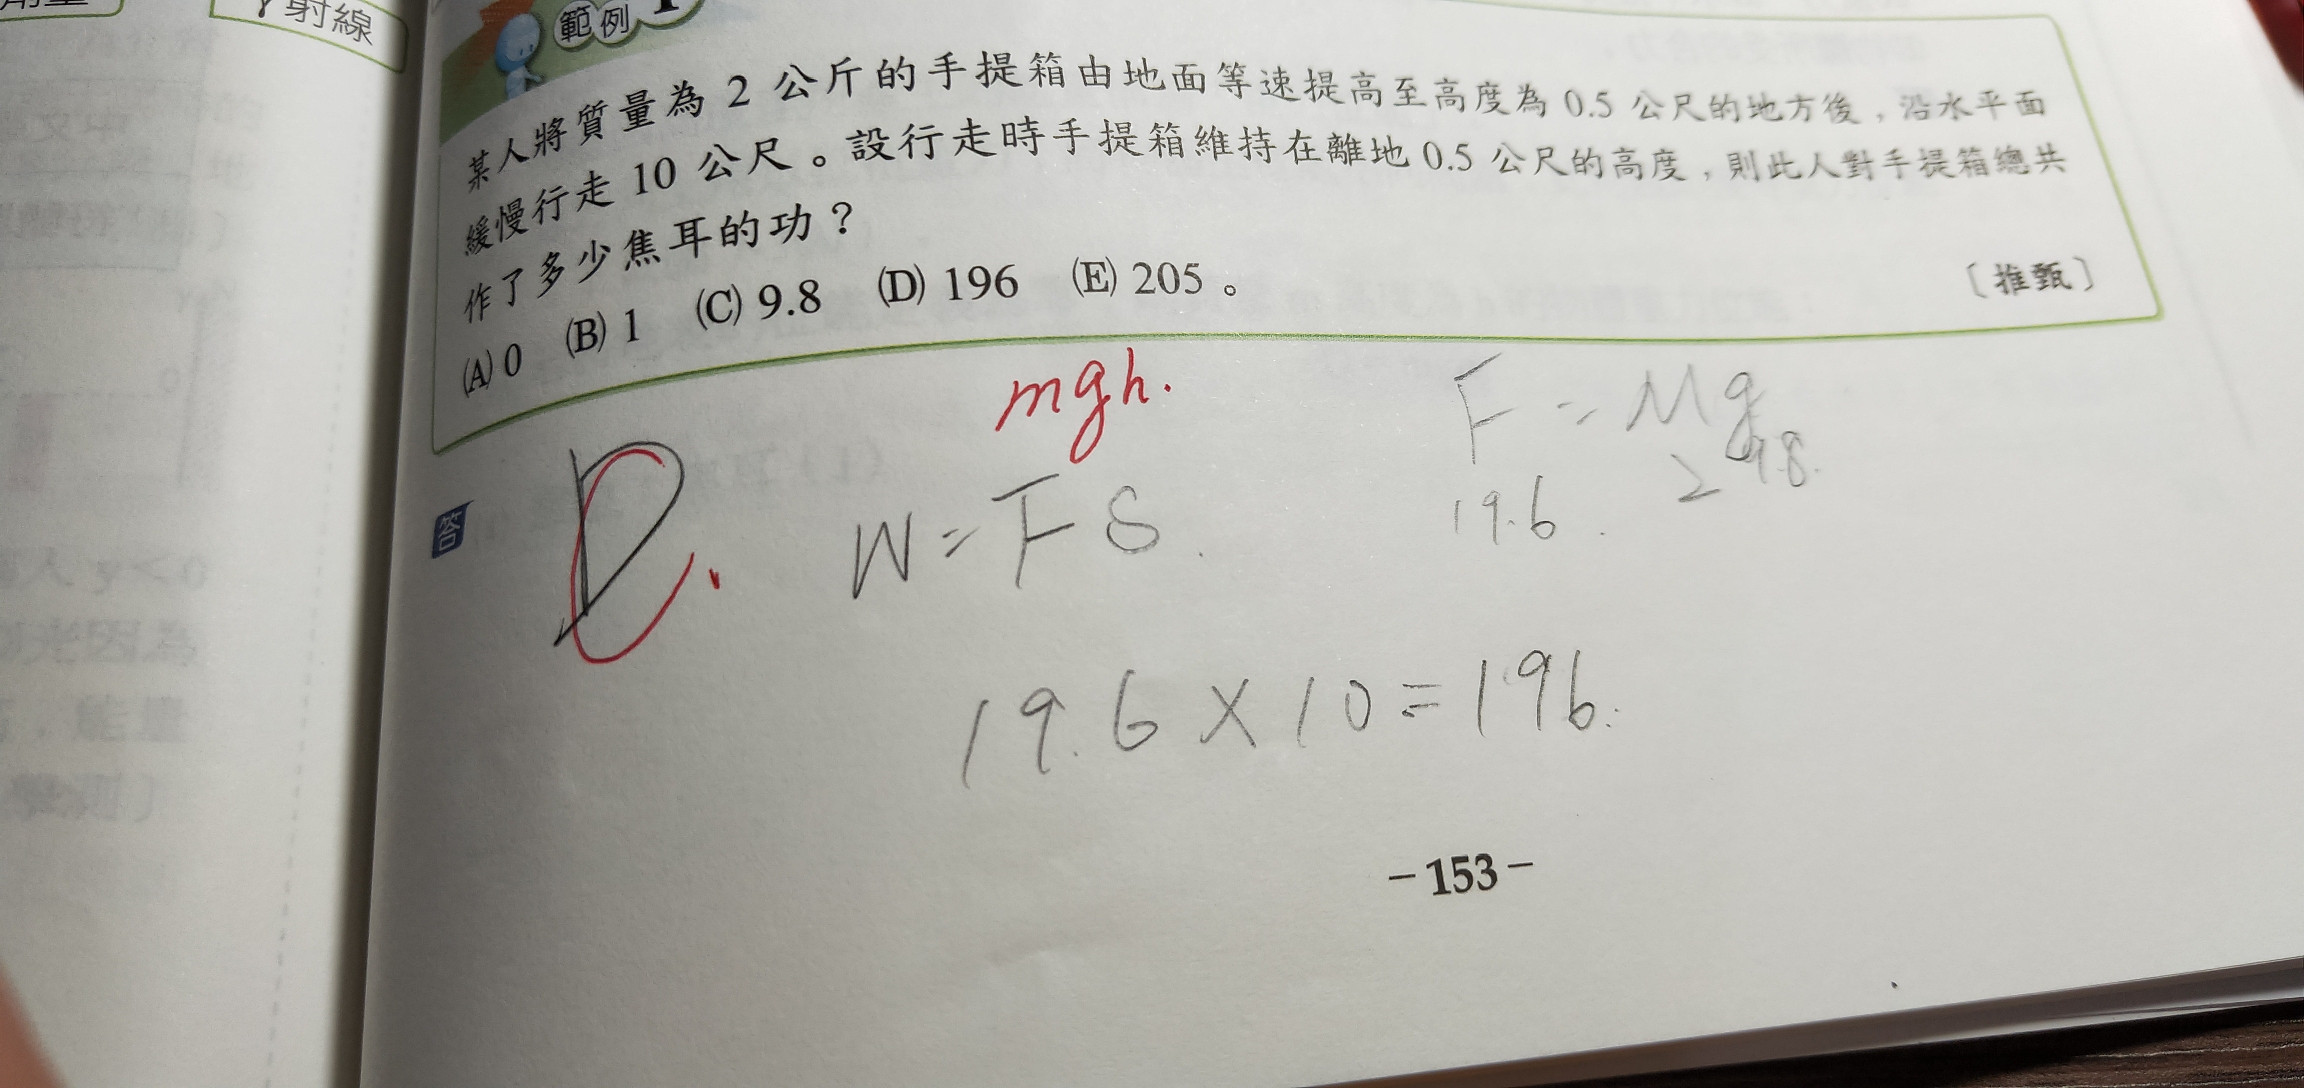 γ射線
範例 1
某人將質量為 2 公斤的手提箱由地面等速提高至高度為 0.5 公尺的地方後，沿水平面
緩慢行走 10 公尺。設行走時手提箱維持在離地 0.5 公尺的高度，則此人對手提箱總共
作了多少焦耳的功？
〔推甄〕
(A) 0 (B) 1 (C) 9.8 (D) 196 (E) 205。
mgh.
F = Mg
2 9.8.
19.6.
答
D
C.
W = F S.
19.6 × 10 = 196.
－153－